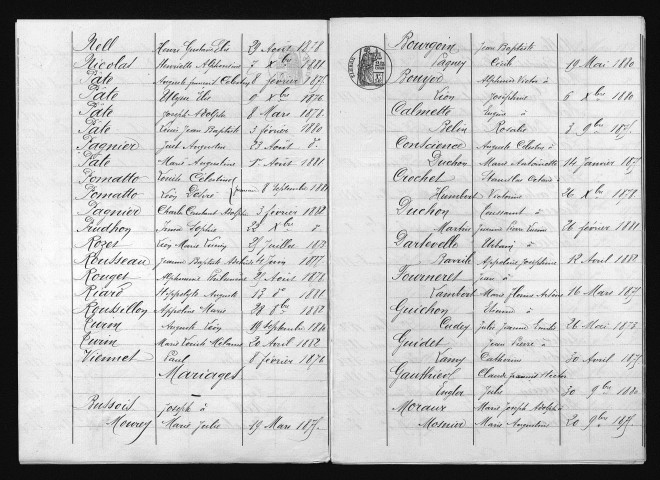 Nell Henri Gustave 29 Août 1878
Nicolas Henriette Alphonsine 7 Xbre 1881
Pâte Auguste 8 février 1875
Pâte Ulysse 9 Xbre 1876
Pâte Joseph Adolphe 8 Mars 1878
Pâte Louis Jean Baptiste 3 février 1880
Pagnier Just Augustin 23 Août do
Pâte Marie Augustine 1er Août 1881
Pomatto Louise Célestine
Pomatto Léon Désiré 8 Septembre 1881
Pagnier Charles Constant Adolphe 3 février 1882
Prudhon Irma Sophie 22 Xbre
Rozet Léon Marie 25 Juillet
Rousseau Jeanne Baptiste 4 1877
Rouget Alphonsine Philomène 2 Août 1878
Riard Hippolyte Auguste 13 do 1881
Roussillon Appoline Marie 28 8bre
Turin Auguste Léon 19 Septembre 1880
Turin Marie Louise Mélanie 20 Avril 1882
Viennet Paul 8 février 1876
Mariages
Bussois Joseph à
Mourey Marie Julie 19 Mars 1875
Bourgein Jean Baptiste
Pagney Cécile 19 Mai 1880
Bouzod Alphonse Victor à
Léon Joséphine 6 Xbre 1880
Calmette Eugène à
Belin Rosalie 3 9bre 1875
Conscience Auguste Célestin à
Duchon Marie Antoinette 14 Janvier 1875
Crochet Stanislas Octave
Humbert Victorine 26 Xbre 1878
Duchon Constant à
Martin Jeanne 26 février 1881
Dartevelle Urbain à
Bavoile Appoline Joséphine 12 Avril 1882
Tourneret Jean à
Lambert Marie 16 Mars 1875
Guichon Etienne à
Cudey Julie Jeanne Emilie 26 Mai 1875
Guidet Jean Pierre à
Lamy Catherine 30 Avril 1875
Gauthier Claude
Engler Julie 30 9bre 1880
Moraux Marie Joseph Adolphe
Mosnier Marie Augustine 20 9bre 1875